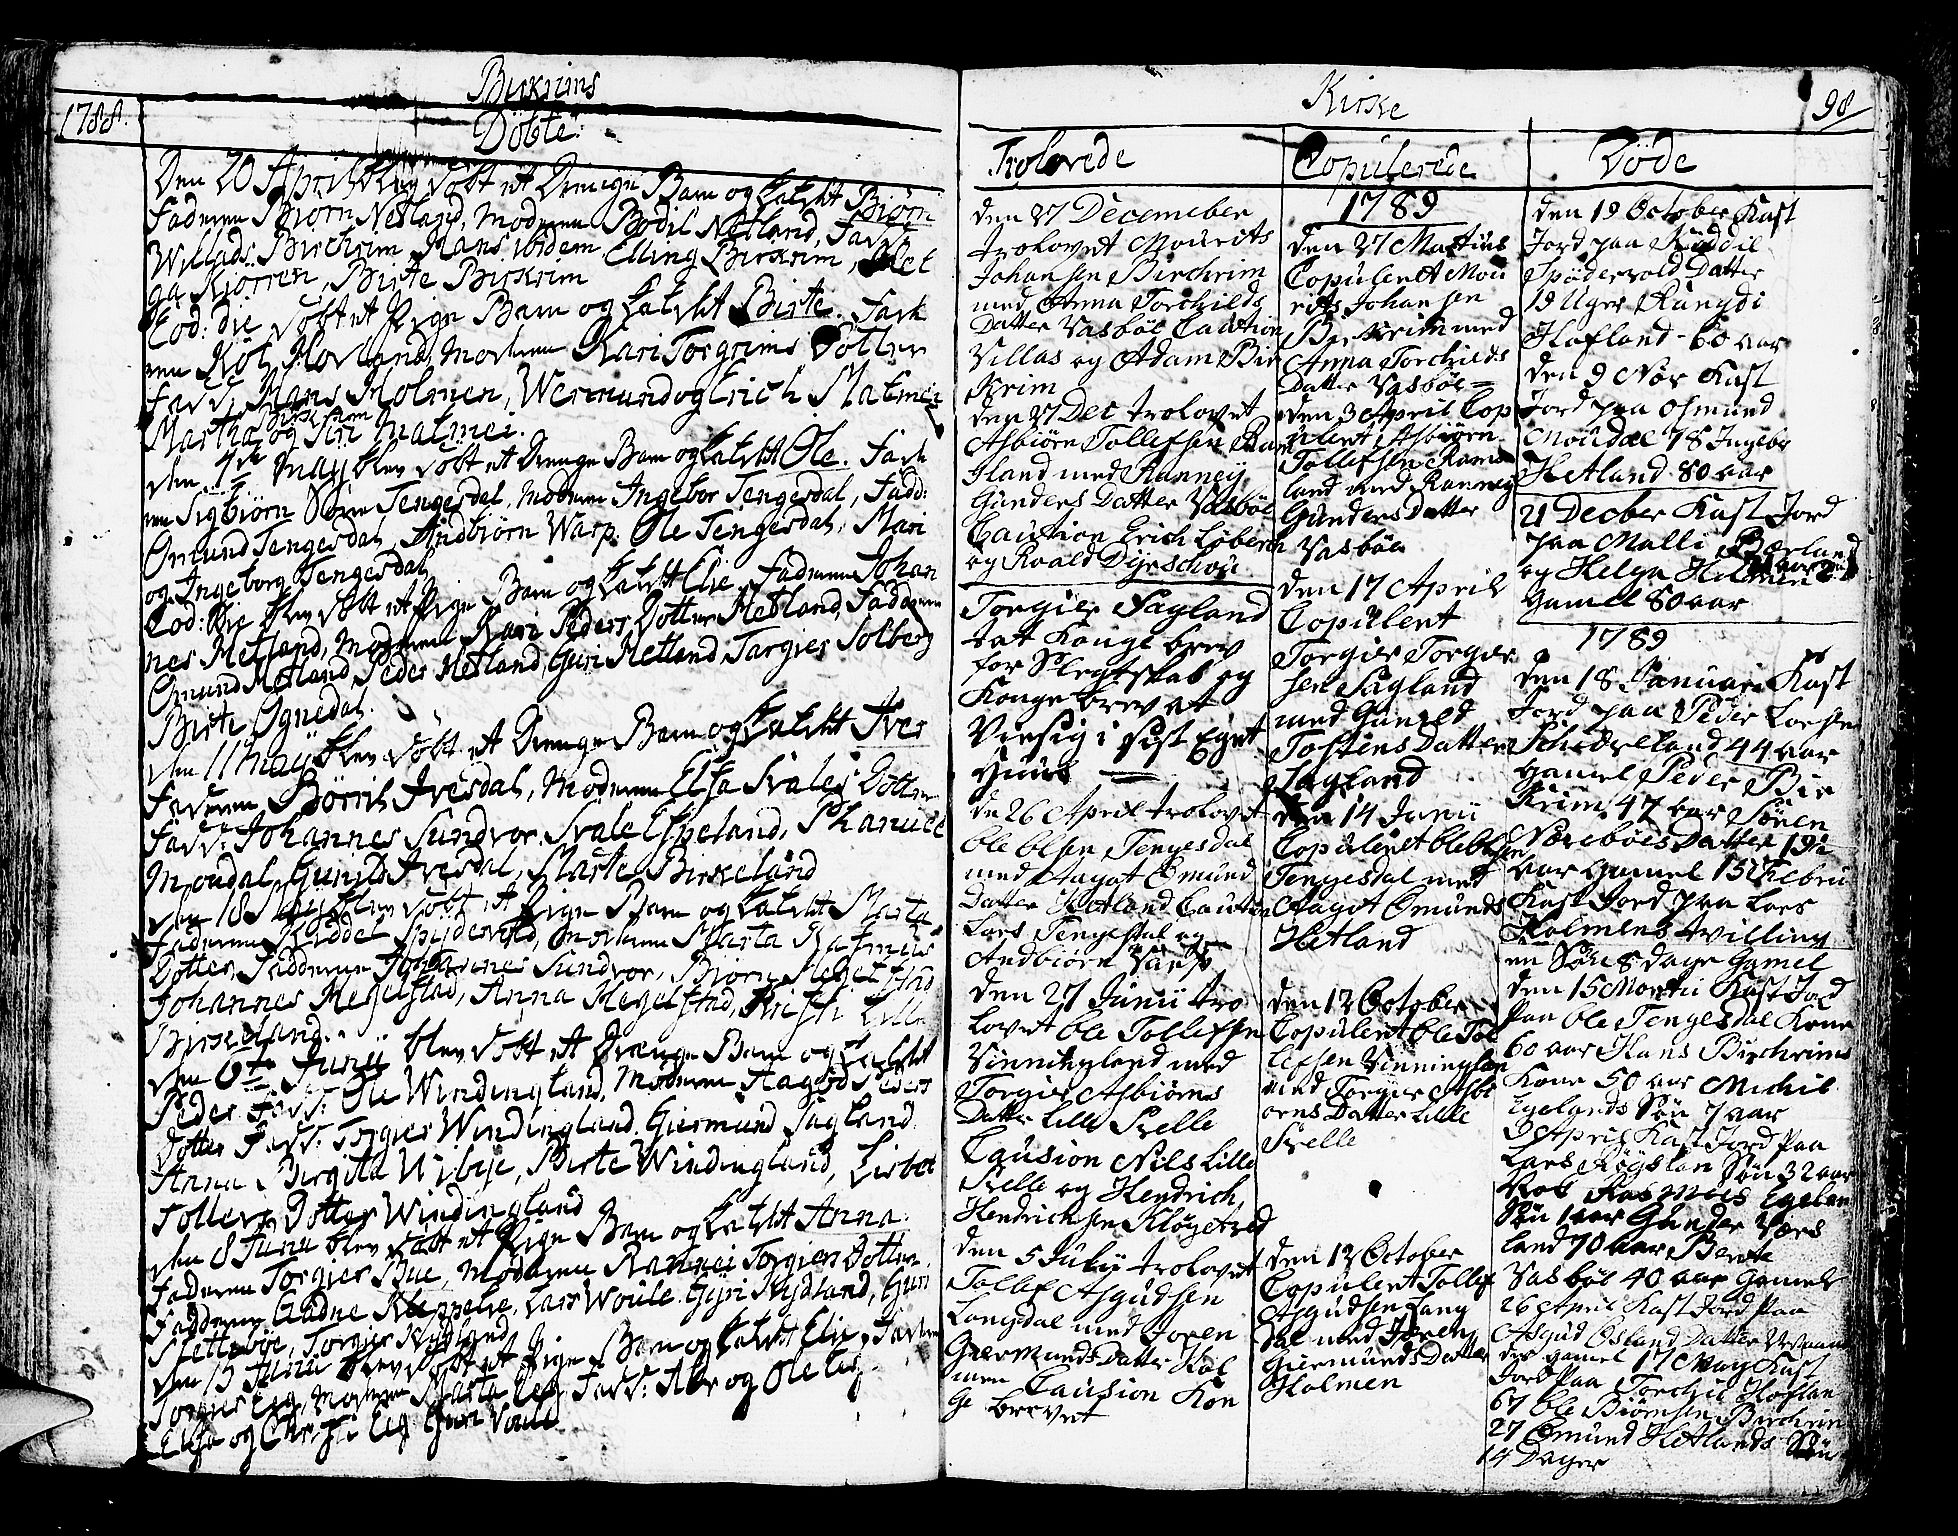 Birkrims
1788.
Döbte
Den 20 April blev döbt et Drenge Barn og kaldt Biörn
Faderen Biörn Netland, Moderen Bodil Netland, Fadd:
Willads Birchrim Hans ibidem Elling Birkrim,
Kiörren, Birte Birkrim
Eod: die döbt et Pige Barn og kaldt Birte. Fad
ren Hovland Moderen Kari Torgrims Dotter
Fadd: Hans Holmen, Wermund og Erich Malmei
Birkrem
Martha og Siri Malmei.
den 1te May blev döbt et Drenge Barn og kaldt Ole. Fad
ren Sigbiörn Tengesdal, Moderen Ingebor Tengesdal, Fadd:
Omund Tengesdal, Andbiörn Warp. Ole Tengesdal, Mari
og Ingeborg Tengesdal
Eod: Die blev döbt et Pige Barn og kaldt Elie, Faderen Johan
nes Hetland, Moderen Kari Peders Dotter Hetland, Fadderne
Omund Hetland, Peder Hetland, Guri Hetland, Targier Solberg
Birte Ognedal.
den 11 May blev döbt et Drenge Barn og kaldt Iver
Faderen Börril Ivesdal, Moderen Elsa Svales Dotter
Fadd: Johannes Sundvor, Svale Espeland, Phanuel
Moudal, Gunild Ivesdal, Marte Birkeland
den 18 May blev döbt et Pige Barn og kaldt Marta
Faderen Kiddel Spöderold, Moderen Marta Rasmus
Dotter, Fadderne Johannes Sundvor, Biörn Hegelstad
Johannes Hegelstad, Anna Hegelstad, Kristi Lille
Birkeland.
den 6te Junii blev döbt et Drenge Barn og kaldt
Peder Fadd: Ole Windingland, Moderen Aagod Peders
Dotter Fadd: Torgier Windingland, Giermund Sagland
Anna Birgita Wibye, Birte Windingland, Lisbet
Tollevs Dotter Windingland
den 8 Junii blev döbt et Pige Barn og kaldt Anna.
Faderen Torgier Bue, Moderen Rannei Torgiers Dotter
Fadderne Gadne Kleppelie, Lars Woule, Gyri Rydland, Guri
Sletteböe, Torgier Rydland
den 15 Junii blev döbt et Pige Barn og kaldt Elie, Faderen
Torgier Eeg, Moderen Marta Eeg, Fadd: Abr og Ole Eeg
Elsa og Christi Eeg Guri Woule
Kirke
98
Trolovede
den 27 Decemeber
trolovet Mourits
Johansen Birchrim
med Anna Torchilds
Datter Vasböe Caution
Villas og Adam Bir
krim
den 27 Dec trolovet
Asbiörn Tollefsen Ram
sland med Ranney
Gunders Datter Vasböe
Caution Erich Löberch
og Roald Dyrschou
Torgier Sagland
tat Konge brev
for Slegtskab og
Konge brev at
Viesig i sist Eget
Huus
de 26 April trolovet
Ole Olsen Tengesdal
med Aagot Omund
Datter Hetland Caution
Lars Tengesdal og
Andbiörn Varp
den 27 Junii tro
lovet Ole Tollefsen
Vinningland med
Torgier Asbiörns
Datter Lille Svelle
Causion Nils Lille
Svelle og Hendrich
Hendrichsen Klögetved
den 5 July trolovet
Tollef Asgudsen
Langdal med Joren
Giermunds Datter Hol
men Causion Kon
ge brevet
Copulerede
1789
den 27 Martius
Copuleret Mou
rits Johansen
Berkrim med
Anna Torchilds
Datter Vasböe
den 3 April Cop
uleret Asbiörn
Tollefsen Rams
land med Ranney
Gunders Datter
Vasböe
den 17 April
Copuleret
Torgier Torgier
sen Sagland
med Guneld
Tostens Datter
Sagland
den 14 Junii
Copuleret Ole Olsen
Tengesdal med
Aagot Omunds
Hetland
den 12 October
Copuleret Ole Tol
lefsen Vinninglan
med Torgier Asbi
örns Datter Lille
Svelle
den 12 October
Copuleret Tollef
Asgudsen Lang
dal med Joren
Giermunds Datter
Holmen
Döde
den 19 October Kast
Jord paa Kiddil
Spöderold Datter
19 Uger Rungdi
Hofland 60 aar
den 9 Nov Kast
Jord paa Osmund
Moudal 78 Ingebr
Hetland 80 aar
21 Decber Kast Jord
paa Malli Berland
og Helga Holmen
Gamel 80 aar
1789
den 18 Januari Kast
Jord paa Peder Larsen
Schiereland 44 aar
Gamel Peder Bir
krim 47 aar Sören
Noreböes Datter 19½
aar Gamel 15 Febru
Kast Jord paa Lars
Holmens tvilling
en Sön 8 dage Gamel
den 15 Martii Kast Jord
Paa Ole Tengesdal Kone
60 aar Hans Birchrims
Kone 50 aar Michil
Egelands Sön 7 aar
3 April Kast Jord Paa
Lars Röyslan Sön 32 aar
Rasmus Egelan
Sön 1 aar Gunder Vers
land 70 aar Berte
Vasböe 40 aar Gamel
26 April Kast Jord Paa
Asgud Osland Datter
der gamel 17 May Kast
Jord Paa Torchil Hoflan
67 Ole Biörnsen Birchrim
27 Omund Hetlands Sön
14 Dager